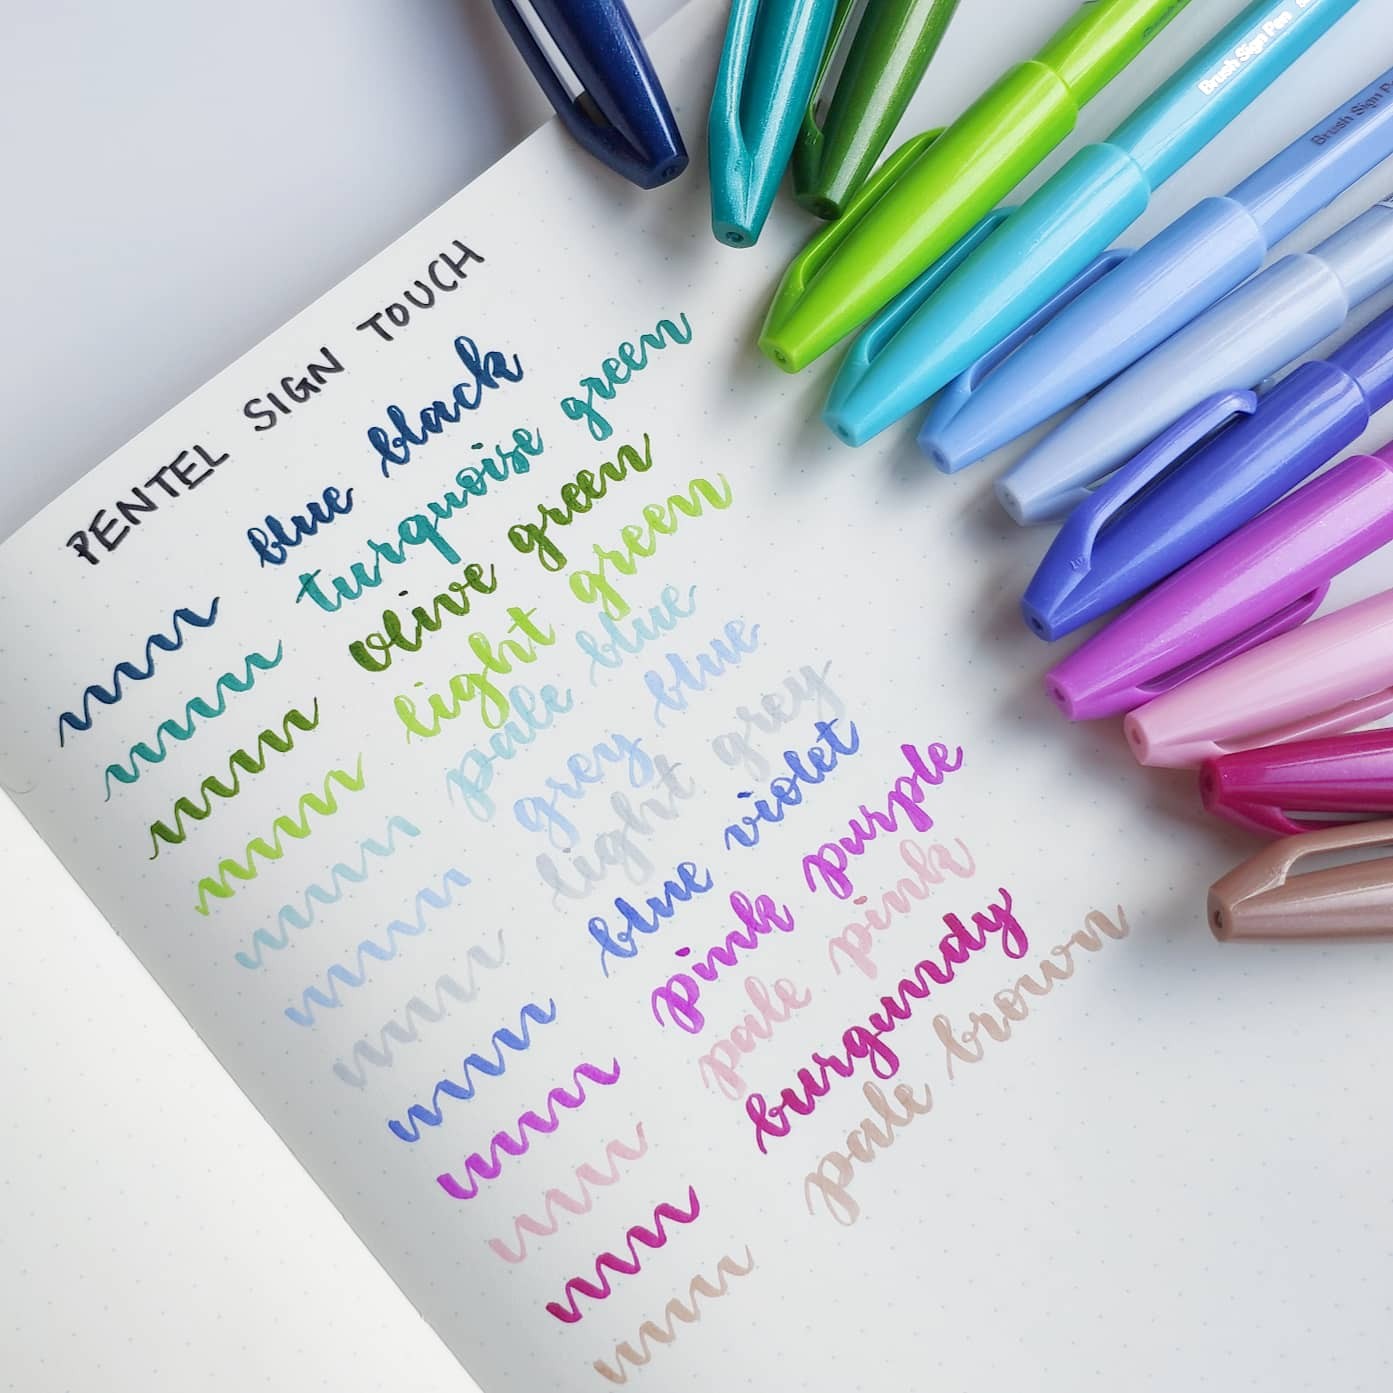 PENTEL SIGN TOUCH
blue black
turquoise green
olive green
light green
pale blue
grey blue
light grey
blue violet
pink purple
pale pink
burgundy
pale brown
Brush Sign Pen
Brush Sign P